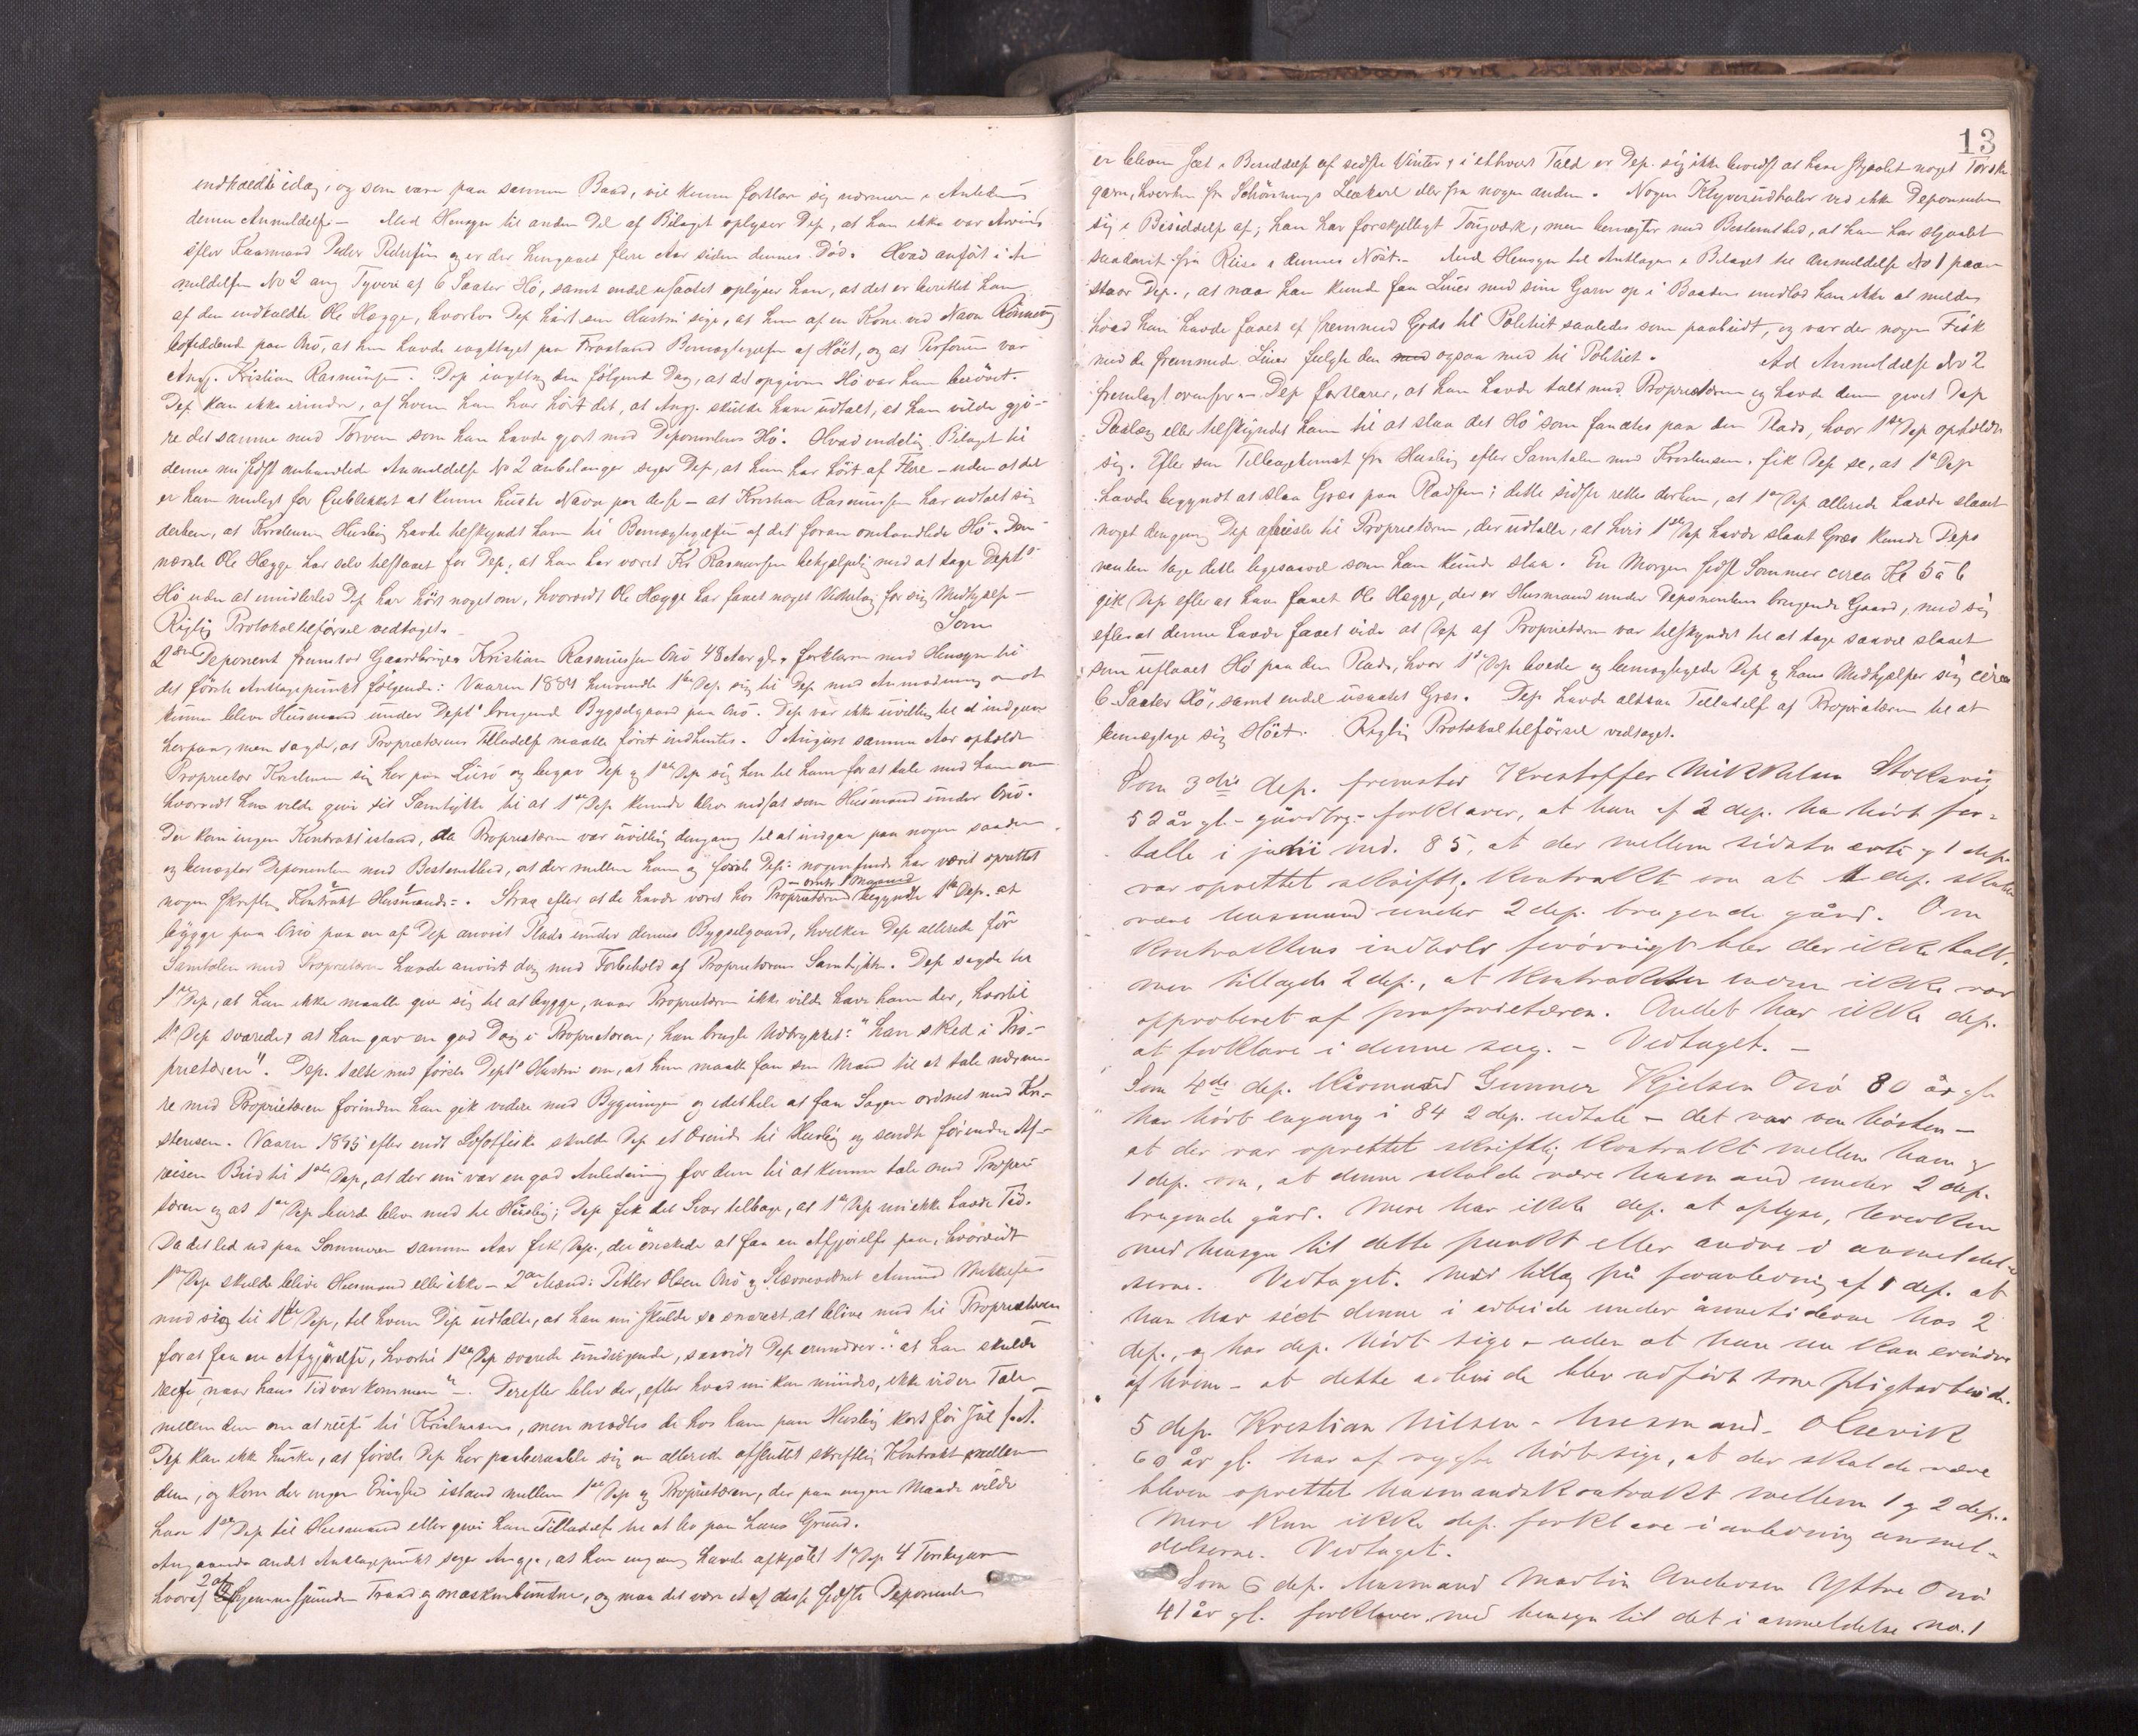 indkaldte idag, og som var paa samme Baad, vil kunne forklare sig nærmere i Anledn.
denne Anmeldelse — Med Hensyn til anden Del af Bilaget oplyser Dep, at han ikke var Arving
efter Kaarmand Peder Pedersen og er der hengaaet flere Aar siden dennes Död. Hvad anfört i An-
meldelsen No 2 ang Tyveri af 6 Saater Hö, samt endel usaatet oplyser han, at det er berettet ham
af den indkaldte Ole Hægge, hvorhos Dep hört sin Hustru sige, at hun af en Kone ved Navn
bosiddende paa Onö, at hun havde iagttaget paa Frastand Bemægtigelsen af Höet, og at Personen var
Angj. Kristian Rasmussen. Dep iagttog den fölgende Dag, at det opgivne Hö var ham berövet.
Dep kan ikke erindre, af hvem han har hört det, at Angj. skulde have udtalt, at han vilde gjö-
re det samme med Torven som han havde gjort med Deponentens Hö. Hvad endelig Bilaget til
denne nu sidst anhandlede Anmeldelse No 2 anbelanger siger Dep, at han har hört af Flere – uden at det
er ham muligt for Öieblikket at kunne huske Navn paa disse – at Kristian Rasmussen har udtalt sig
derhen, at Kristensen Husby havde tilskyndt ham til Bemægtigelsen af det foran omhandlede Hö. Den-
nævnte Ole Hægge har selv tilstaaet for Dep, at han har været Kr Rasmussen behjælpelig med at tage Dept's
Hö uden at imidlertid Dep har hört noget om, hvorvidt Ole Hægge har faaet noget Vederlag for sin Medhjælp —
Rigtig Protokoltilförsel vedtaget. — Som
2den Deponent fremstod Gaardbruger Kristian Rasmussen Onö 48 Aar gl. forklarer med Hensyn til
det förste Anklagepunkt fölgende: Vaaren 1884 henvendte 1ste Dep sig til Dep med Anmodning om at
kunne blive Husmand under Dept' brugende Bygselgaard paa Onö. Dep var ikke uvillig til at indgaa
herpaa, men sagde, at Proprietærens Tilladelse maatte först indhentes. I August samme Aar opholdt
Proprietær Kristensen sig her paa Lurö og begav Dep og 1ste Dep sig hen til ham for at tale med ham om
hvorvidt han vilde give sit Samtykke til at 1ste Dep kunde blive nedsat som Husmand under Onö.
Der kom ingen Kontrakt istand, da Proprietæren var uvillig dengang til at indgaa paa nogen saadan
og benægter Deponenten med Bestemthed, at der mellem ham og förste Dep: nogensinde har været oprettet
nogen skriftlig Kontrakt Husmands-. Strax efter at de havde været hos Proprietæren – omtr 1 Maaned – begyndte 1ste Dep. at
bygge paa Onö paa en af Dep anvist Plads under dennes Bygselgaard, hvilken Dep allerede för
Samtalen med Proprietæren havde anvist dog med Forbehold af Proprietærens Samtykke. Dep sagde til
1ste Dep, at han ikke maatte give sig til at bygge, naar Proprietæren ikke vilde have ham der, hvortil
1ste Dep svarede, at han gav en god Dag i Proprietæren; han brugte Udtrykket: "han sked i Pro-
prietæren". Dep. talte med förste Dept's Hustru om, at hun maatte faa sin Mand til at tale nærme-
re med Proprietæren forinden han gik videre med Bygningen og idethele at faa Sagen ordnet med Kri-
stensen. Vaaren 1885 efter endt Lofotfiske skulde Dep et Erinde til Husby og sendte forinden Af-
reisen Bud til 1ste Dep, at der nu var en god Anledning for dem til at kunne tale med Proprie-
tæren og at 1ste Dep burde blive med til Husby; Dep fik det Svar tilbage, at 1ste Dep nu ikke havde Tid.
Da det led ud paa Sommeren samme Aar fik Dep., der önskede at faa en Afgjörelse paa, hvorvidt
1ste Dep skulde blive Husmand eller ikke – 2de Mænd: Petter Olsen Onö og Stævnevidnet Amund Mikkelsen
med sig til 1ste Dep, til hvem Dep udtalte, at han nu skulde se snarest, at blive med til Proprietæren
for at faa en Afgjörelse, hvortil 1ste Dep svarede undvigende, saavidt Dep erindrer: "at han skulde
reise, naar hans Tid var kommen" –. Derefter blev der, efter hvad nu kan mindes, ikke videre Tale
mellem dem om at reise til Kristensen, men mödtes de hos ham paa Husby kort för Jul s.A.
Dep kan ikke huske, at förste Dep her paaberaabte sig en allerede afsluttet skriftlig Kontrakt mellem
dem, og kom der ingen Enighed istand mellem 1ste Dep og Proprietæren, der paa ingen Maade vilde
have 1ste Dep til Husmand eller give ham Tilladelse til at bo paa hans Grund.
Angaaende andet Anklagepunkt siger Angj., at han engang havde afkjöbt 1ste Dep 4 Torskegarn
hvoraf 2 af hjemmespunden Traad og maskinbundne, og maa det være et af disse sidste Deponenten
13
er bleven sat i Besiddelse af sidste Vinter; i ethvert Fald er Dep. sig ikke bevidst at have stjaalet noget Torske
garn, hverken fra Schönnings Leikarl eller fra nogen anden. Nogen Klyverudhaler ved ikke Deponenten
sig i Besiddelse af; han har forskjelligt Tougværk, men benægter med Bestemthed, at han har stjaalet
saadant fra Reisa i dennes Nöst. Med Hensyn til Anklagen i Bilaget til Anmeldelse No 1 paa-
staar Dep., at naar han kunde faa Liner med sine Garn op i Baaden undlod han ikke at melde
hvad han havde faaet af fremmed Gods til Politiet saaledes som paabudt, og var der nogen Fisk
med de fremmede Liner fulgte den ogsaa med til Politiet. Ad Anmeldelse No 2
fremlagt ovenfor – Dep forklarer, at han havde talt med Proprietæren og havde denne givet Dep
Paalæg eller tilskyndet ham til at slaa det Hö som fandtes paa den Plads, hvor 1ste Dep opholdt
sig. Efter sin Tilbagekomst fra Husby efter Samtalen med Kristensen, fik Dep se, at 1ste Dep
havde begyndt at slaa Græs paa Pladsen; dette sidste rettes derhen, at 1ste Dep allerede havde slaaet
noget dengang Dep afreiste til Proprietæren, der udtalte, at hvis 1ste Dep havde slaaet Græs kunde Depo
nenten tage dette ligesaavel som han kunde slaa. En Morgen sidste Sommer circa Kl 5 à 6
gik Dep efter at have faaet Ole Hægge, der er Husmand under Deponentens brugende Gaard, med sig
efterat denne havde faaet vide at Dep af Proprietæren var tilskyndet til at tage saavel slaaet
som uslaaet Hö paa den Plads, hvor 1ste Dep boede og bemægtigede Dep og hans Medhjælper sig circa
6 Saater Hö, samt endel usaatet Græs. Dep. havde altsaa Tilladelse af Proprietæren til at
bemægtige sig Höet. Rigtig Protokoltilförsel vedtaget.
Som 3die dep. fremstod Kristoffer Mikkelsen Stoksvig
52 år gl. – gårdbrg. – forklarer, at han af 2 dep. har hört for-
talle i julii md. 85, at der mellem sidstnævnte og 1 dep.
var oprettet skriftl. kontrakt om at 1 dep. skulde
være husmand under 2 dep. brugende gård. Om
kontraktens indhold forövrigt blev der ikke talt,
men tillagde 2 dep., at kontrakten endnu ikke var
approberet af proprietæren. Andet har ikke dep.
at forklare i denne sag. – Vedtaget. –
Som 4de dep. Kårmand Gunner Kjelsen Onö 80 år gl.
har hört engang i 84 2 dep. udtale – det var om hösten –
at der var oprettet skriftlig kontrakt mellem ham og
1 dep. om, at denne skulde være husmand under 2 dep.
brugende gård. Mere har ikke dep. at oplyse, hverken
med hensyn til dette punkt eller andre i anmeldel-
serne. Vedtaget. Med tillæg på foranledning af 1 dep. at
han har séet denne i arbeide under ånnetiderne hos 2
dep., og har dep. hört sige – uden at han nu kan erindre
af hvem – at dette arbeide blev udfört som pligtarbeide.
5 dep. Kristian Nilsen – husmand – Olsevik
60 år gl. har af rygte hört sige, at der skulde være
bleven oprettet husmandskontrakt mellem 1 og 2 dep..
Mere kan ikke dep. forklare i anledning anmel-
delserne. Vedtaget.
Som 6 dep. husmand Martin Andersen Yttre Onö
41 år gl. forklarer med hensyn til det i anmeldelse no. 1